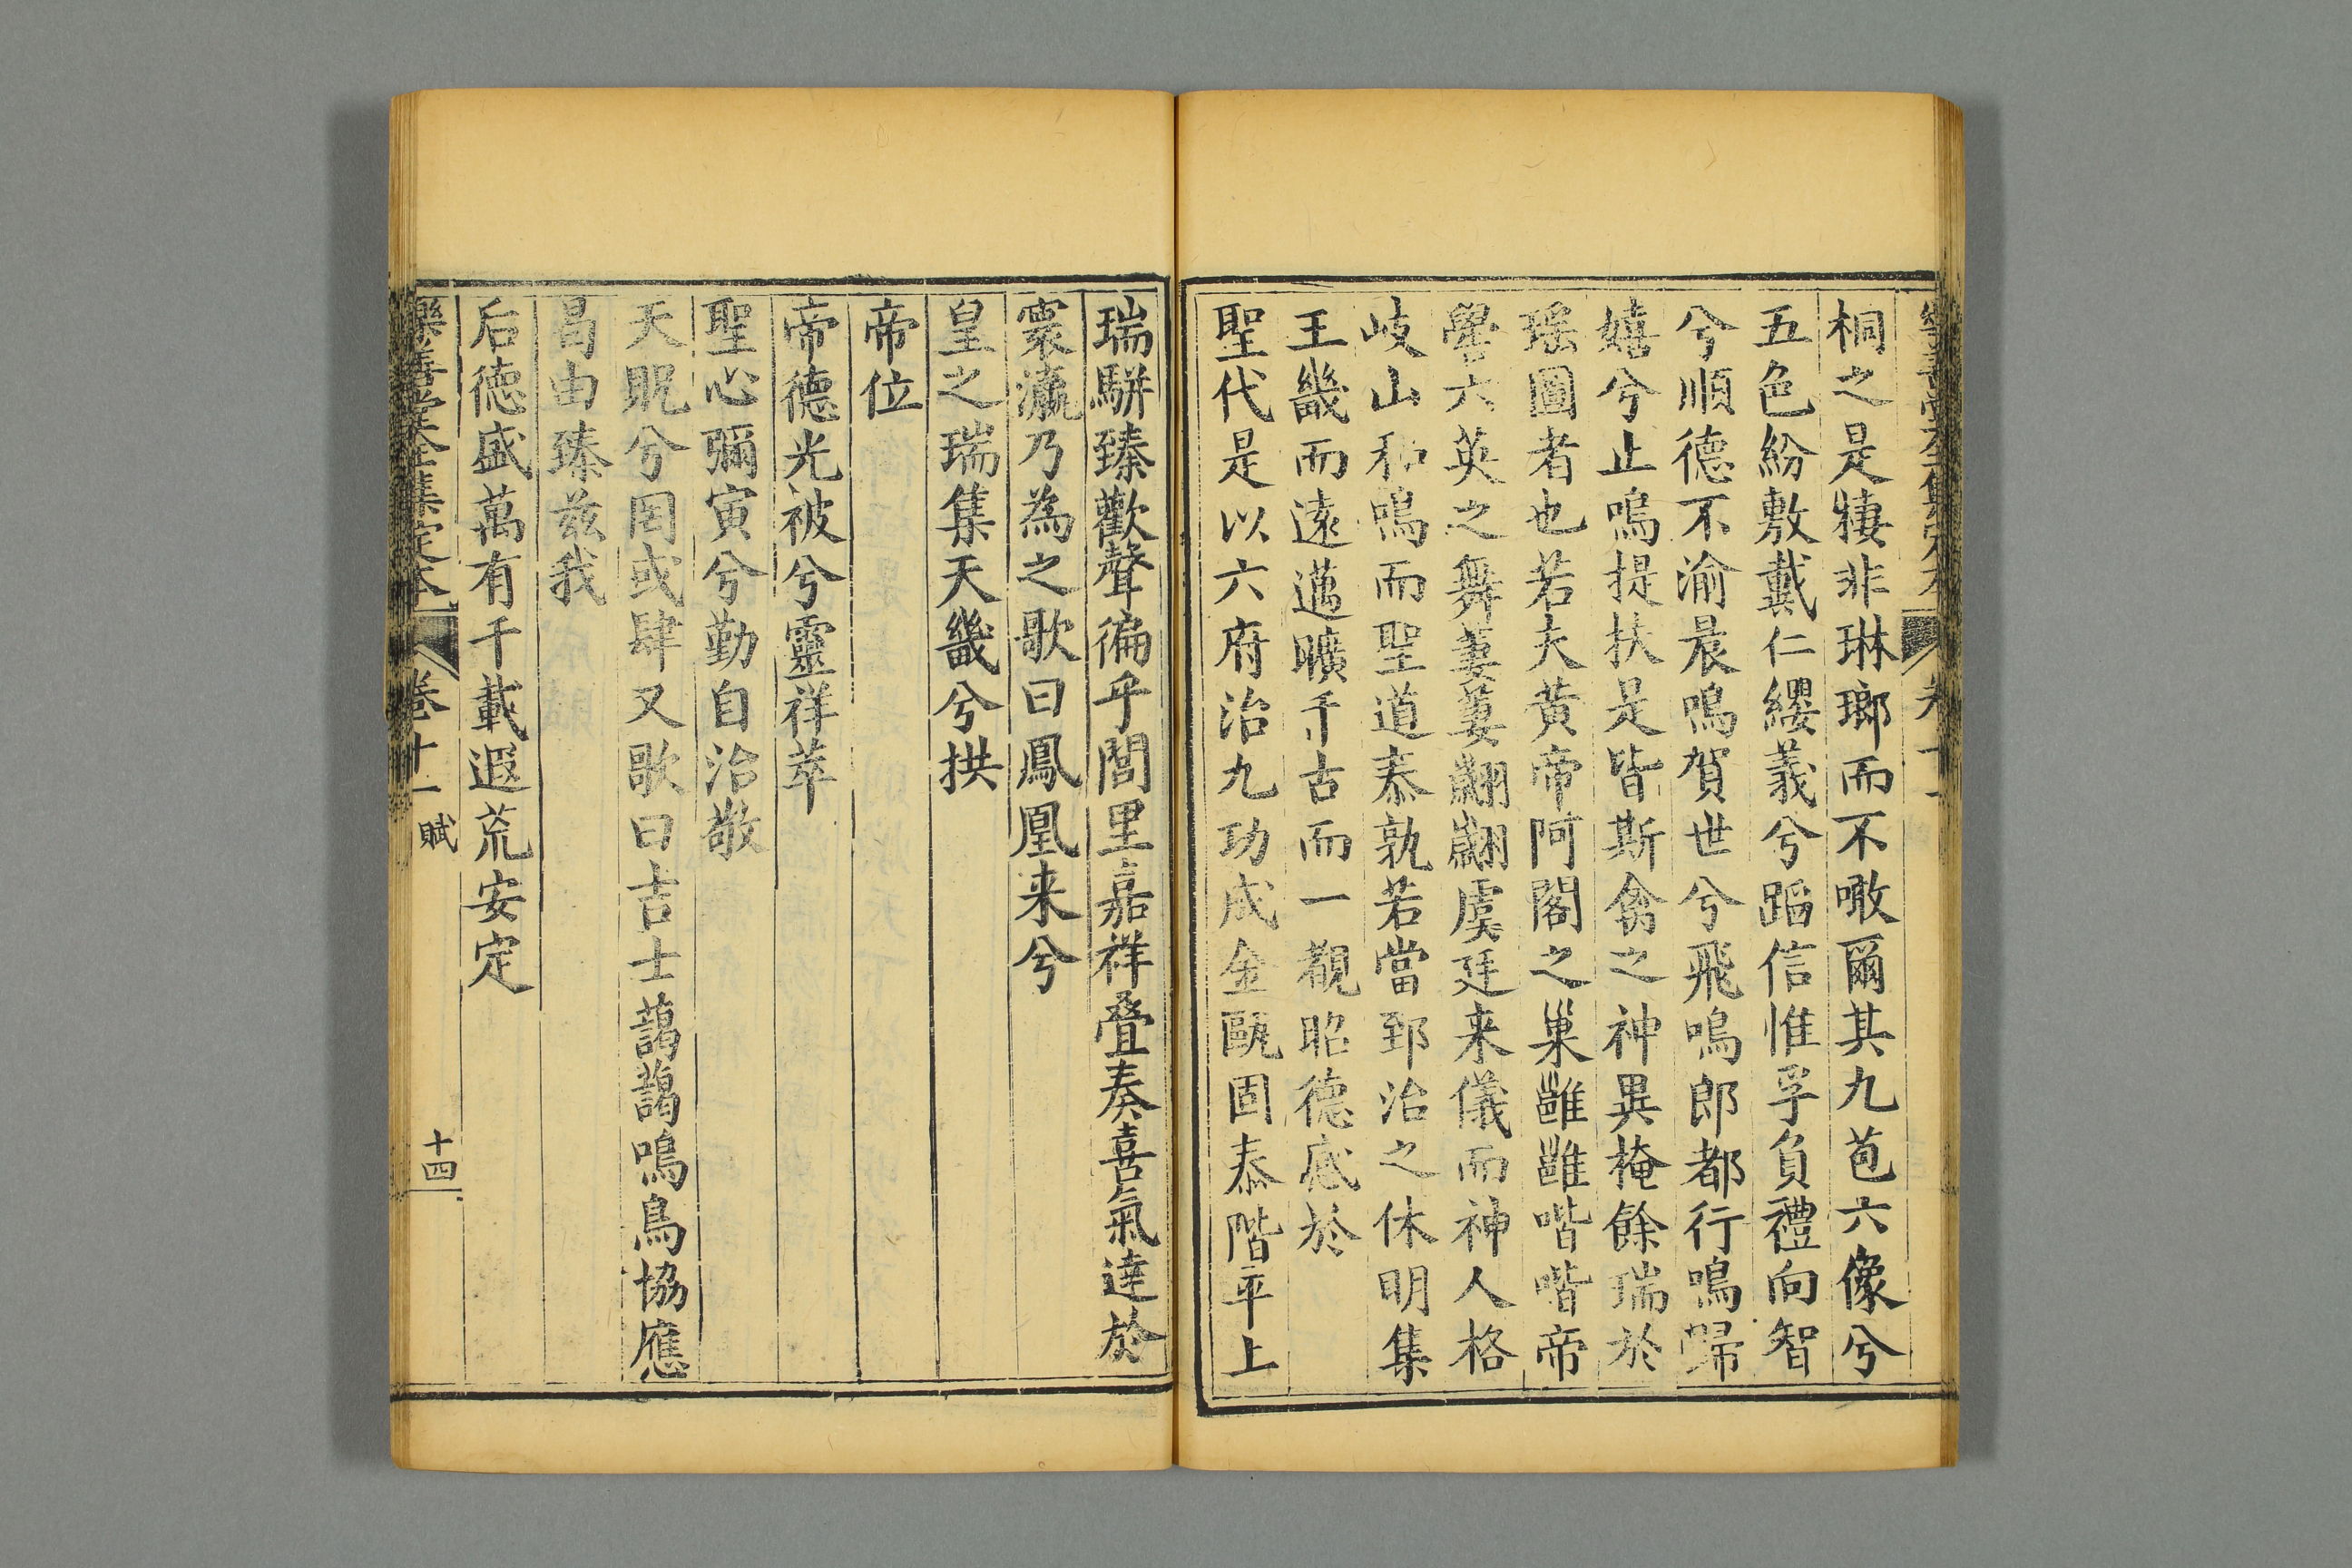 桐之是棲非琳瑯而不噉爾其九苞六像兮
五色紛敷戴仁纓義兮蹈信惟孚負禮向智
兮順德不渝晨鳴賀世兮飛鳴郎都行鳴歸
嬉兮止鳴提扶是皆斯禽之神異掩餘瑞於
瑶圖者也若夫黄帝阿閣之巢雝雝喈喈帝
嚳六英之舞萋萋翽翽虞廷来儀而神人格
岐山和鳴而聖道泰孰若當郅治之休明集
王畿而遠邁曠千古而一覯昭德底於
聖代是以六府治九功成金甌固泰階平上
瑞駢臻歡聲徧乎閭里嘉祥疊奏喜氣達於
寰瀛乃為之歌曰鳳凰来兮
皇之瑞集天畿兮拱
帝位
帝德光被兮靈祥萃
聖心彌寅兮勤自治敬
天貺兮罔或肆又歌曰吉士藹藹鳴鳥協應
曷由臻兹我
后德盛萬有千載遐荒安定
樂善堂全集定本 卷十一 賦 十四